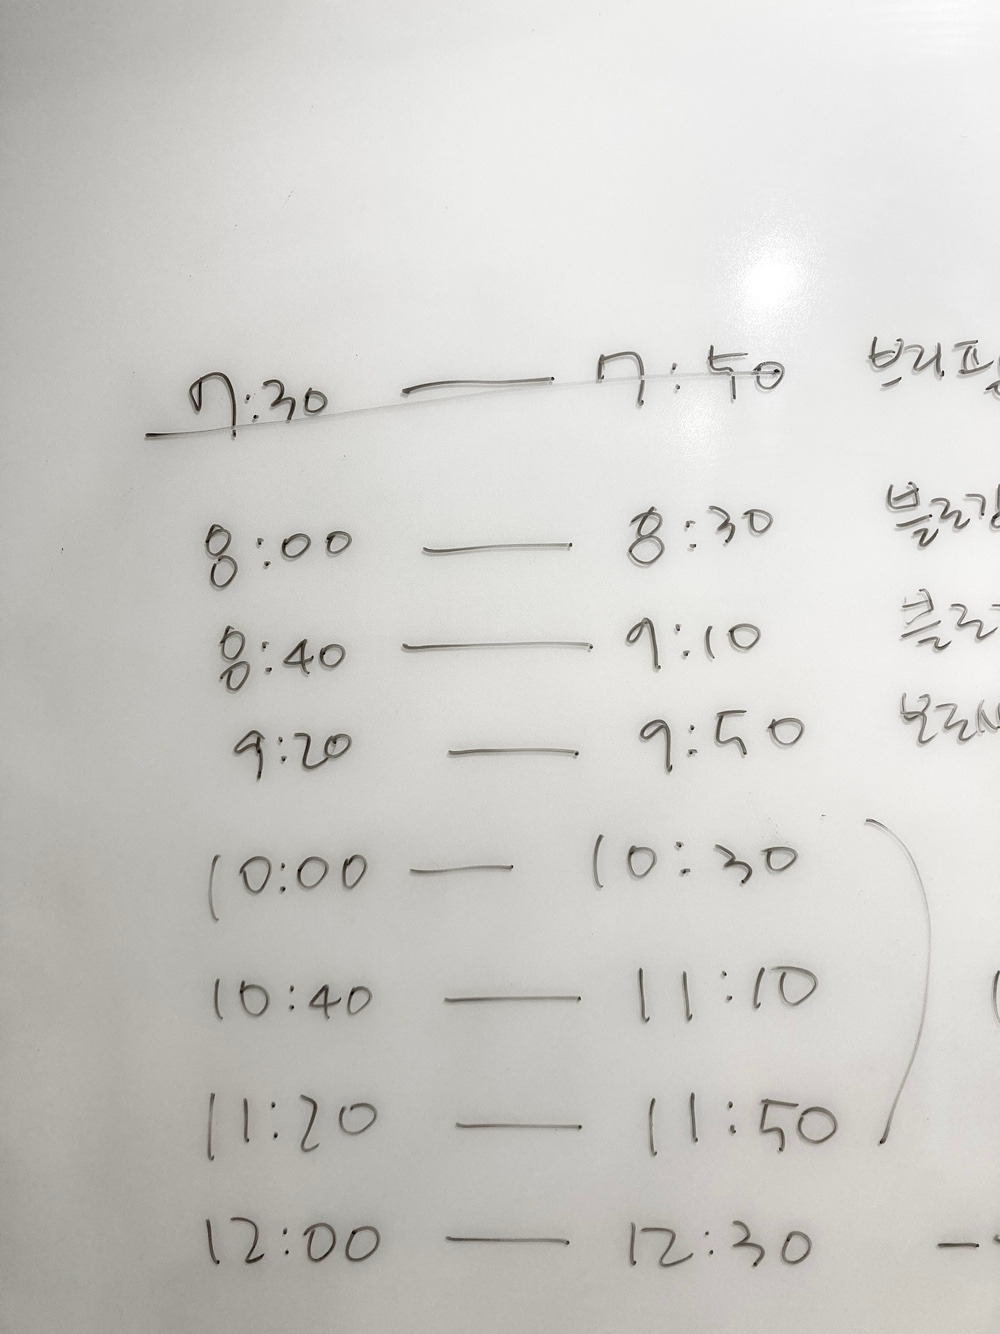 7:30 — 7:50 브리핑
8:00 — 8:30
8:40 — 9:10
9:20 — 9:50
10:00 — 10:30
10:40 — 11:10
11:20 — 11:50
12:00 — 12:30 —